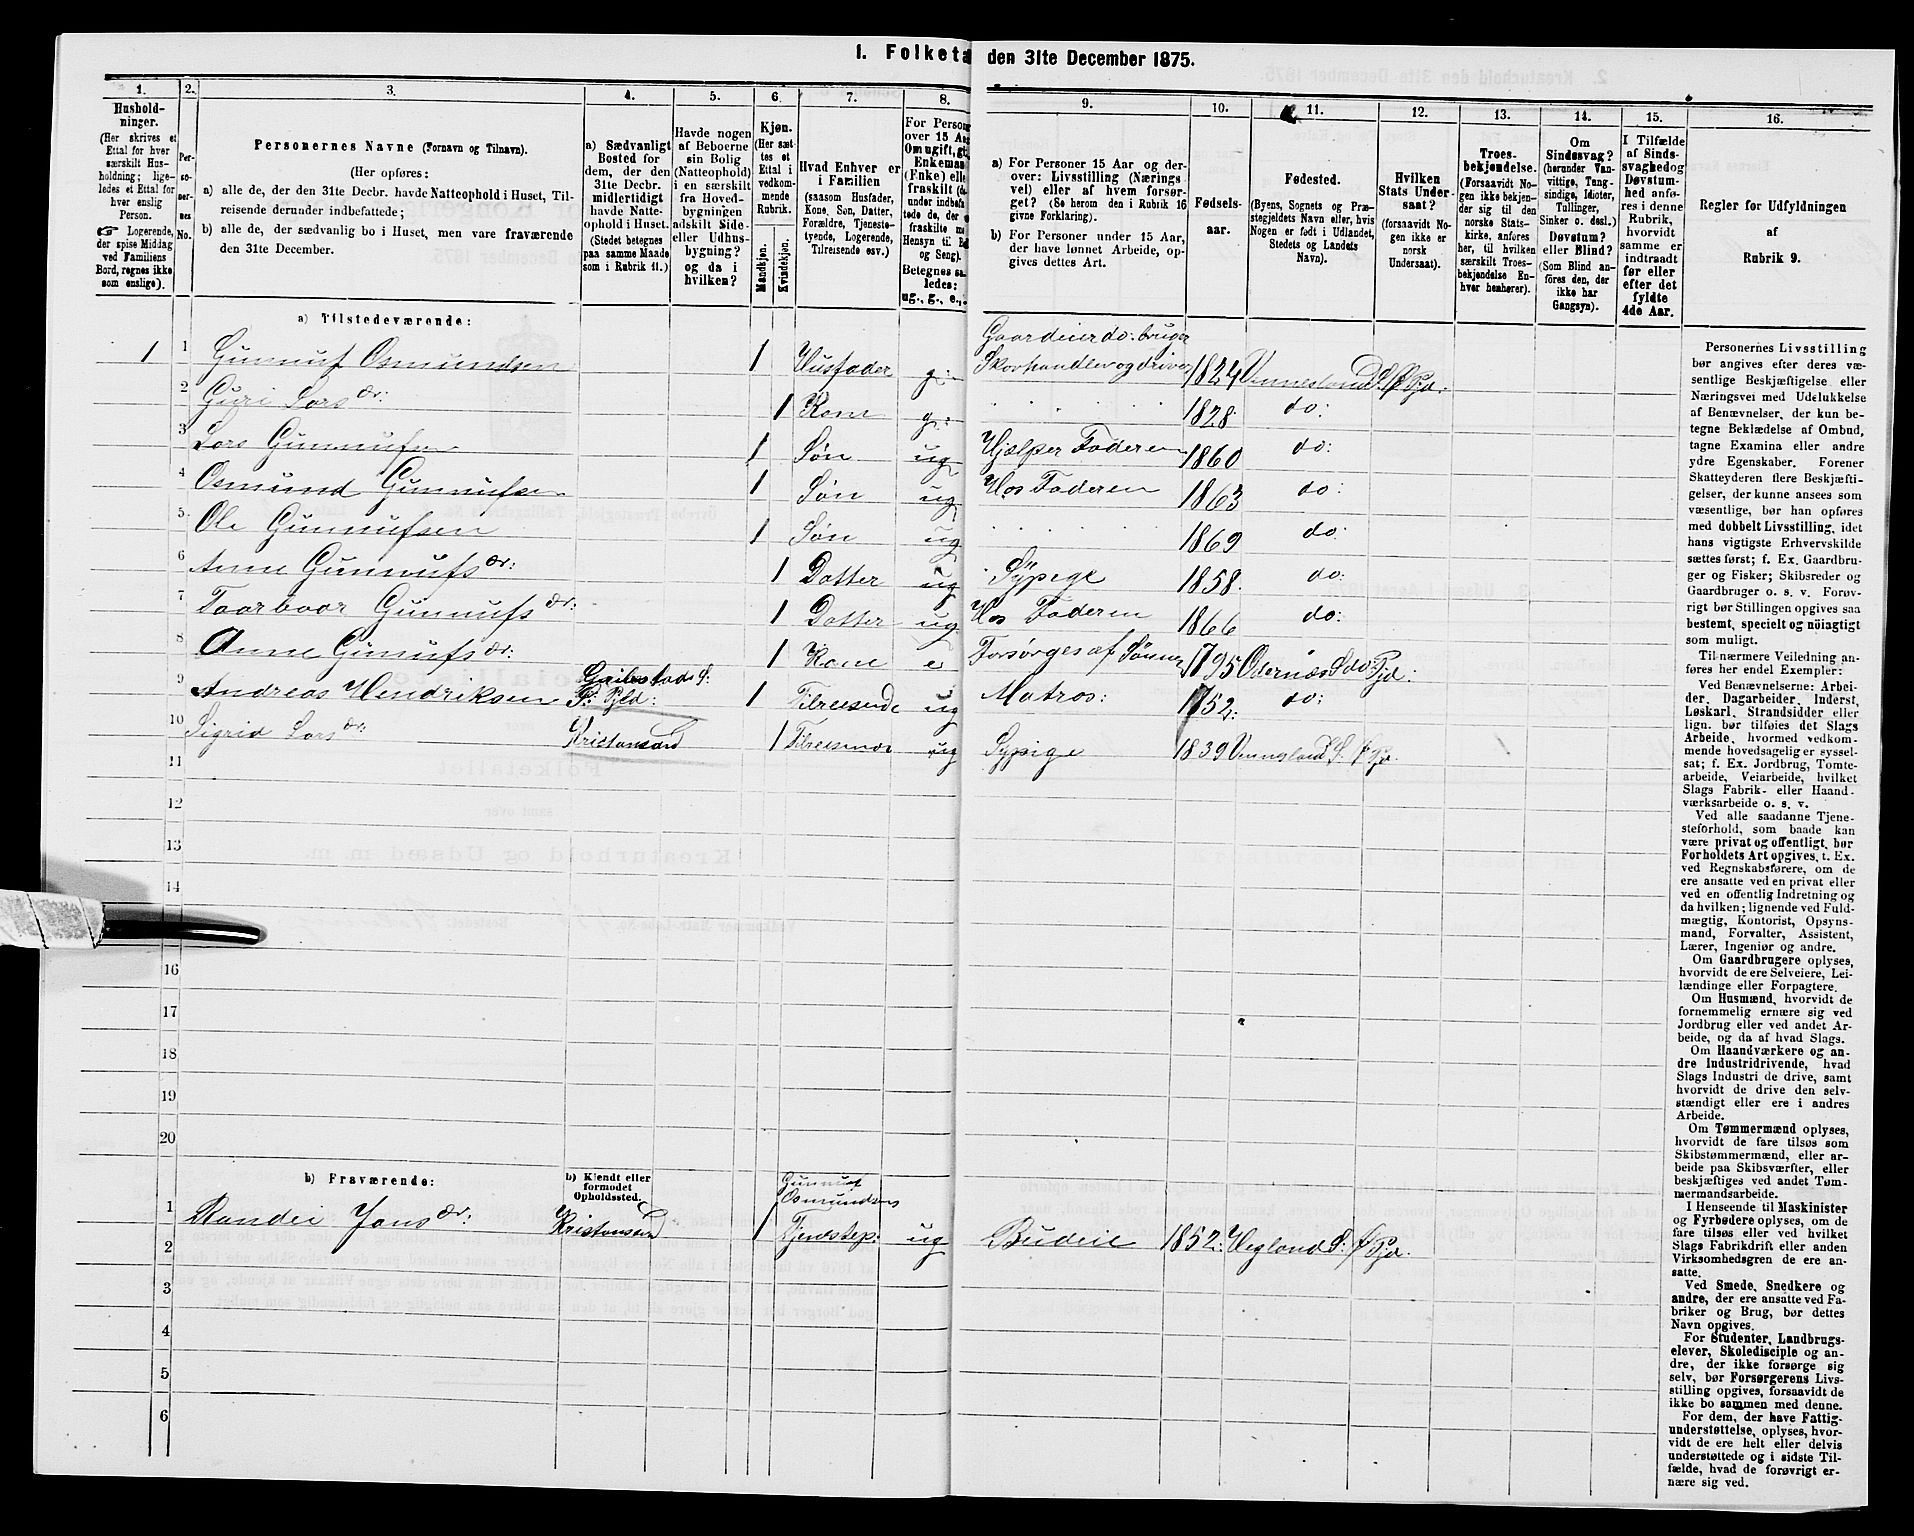 1. Folketæ den 31te December 1875.
1. 2. 3. 4. 5. 6. 7. 8. 9. 10. 11. 12. 13. 14. 15. 16.
Hushold-
ninger.
(Her skrives et
Ettal for hver
særskilt Hus-
holdning; lige-
ledes et Ettal for
hver enslig
Person.
☞ Logerende,
der spise Middag
ved Familiens
Bord, regnes ikke
som enslige).
Per-
so-
ner-
nes
No.
Personernes Navne (Fornavn og Tilnavn).
(Her opføres:
a) alle de, der den 31te Decbr. havde Natteophold i Huset, Til-
reisende derunder indbefattede;
b) alle de, der sædvanlig bo i Huset, men vare fraværende
den 31te December.
a) Sædvanligt
Bosted for
dem, der den
31te Decbr.
midlertidigt
havde Natte-
ophold i Huset.
(Stedet betegnes
paa samme Maade
som i Rubrik 11.)
Havde nogen
af Beboerne
sin Bolig
(Natteophold)
i en særskilt
fra Hoved-
bygningen
adskilt Side-
eller Udhus-
bygning?
og da i
hvilken?
Kjøn.
(Her sæt-
tes et
Ettal i
vedkom-
mende
Rubrik.
Mandkjøn.
Kvindekjøn.
Hvad Enhver er
i Familien
(saasom Husfader,
Kone, Søn, Datter,
Forældre, Tjeneste-
tyende, Logerende,
Tilreisende osv.)
For Person
over 15 Aa
Om ugift, gi
Enkeman
(Enke) elle
fraskilt (de
under indbefa
tede de, der
fraskilte m
Hensyn til B
og Seng).
Betegnes sa
ledes:
ug., g., e.,
a) For Personer 15 Aar og der-
over: Livsstilling (Nærings-
vei) eller af hvem forsør-
get? (Se herom den i Rubrik 16
givne Forklaring).
b) For Personer under 15 Aar,
der have lønnet Arbeide, op-
gives dettes Art.
Fødsels-
aar.
Fødested.
(Byens, Sognets og Præ-
stegjeldets Navn eller, hvis
Nogen er født i Udlandet,
Stedets og Landets
Navn).
Hvilken
Stats Under-
saat?
(forsaavidt No-
gen ikke er
norsk
Undersaat).
Troes-
bekjendelse.
(Forsaavidt No-
gen ikke bekjen-
der sig til den
norske Stats-
kirke, anføres
her, til hvilken
særskilt Troes-
bekjendelse En-
hver henhører).
Om
Sindssvag?
(herunder Van-
vittige, Tung-
sindige, Idioter,
Tullinger,
Sinker o. desl.)
Døvstum?
eller Blind?
(Som Blind an-
føres den, der
ikke har
Gangsyn).
I Tilfælde
af Sinds-
svaghed og
Døvstum-
hed anfø-
res i denne
Rubrik,
hvorvidt
samme er
indtraadt
før eller
efter det
fyldte
4de Aar.
Regler for Udfyldningen
af
Rubrik 9.
a) Tilstedeværende:
Gaardeier do: bruger
1 1 Gunnuf Osmundsen 1 Husfader g: Skovhandler og driver 1824 Vennesland S. Ø Pjd.
2 Guri Lars dr: 1 Kone g: 1828 do:
3 Lars Gunnufsen 1 Søn ug Hjælper Faderen 1860 do:
4 Osmund Gunnufsen 1 Søn ug Hos Faderen 1863 do:
5 Ole Gunnufsen 1 Søn ug 1869 do:
6 Anne Gunnufs dr: 1 Datter ug Sypige 1858 do:
7 Taarboor Gunnufs dr: 1 Datter ug Hos Faderen 1866 do:
8 Anne Gunufs dr: 1 Kone e Forsørges af Sønnen 1795 Odernæs S do: Pjd:
9 Andreas Hendriksen P: Pjld: 1 Tilreisende ug Matros: 1752: do:
10 Sigrid Lars dr: Kristansand 1 Tilreisende ug Sypige 1839 Vennesland S: Ø Pjd.
11
12
13
14
16
17
18
19
20
b) Fraværende:
b) Kjendt eller
formodet
Opholdssted.
Gunnuf
Osmundsens
1 Randei Jons dr: Kristansand 1 Tjenestep: ug Budeie 1852: Hegland S: Ø Pjd.
2
3
4
5
6
Personernes Livsstilling
bør angives efter deres væ-
sentlige Beskjæftigelse eller
Næringsvei med Udelukkelse
af Benævnelser, der kun be-
tegne Beklædelse af Ombud,
tagne Examina eller andre
ydre Egenskaber. Forener
Skatteyderen flere Beskjæfti-
gelser, der kunne ansees som
væsentlige, bør han opføres
med dobbelt Livsstilling, idet
hans vigtigste Erhvervskilde
sættes først; f. Ex. Gaardbru-
ger og Fisker; Skibsreder og
Gaardbruger o. s. v. Forøv-
rigt bør Stillingen opgives saa
bestemt, specielt og nöiagtigt
som muligt.
Til nærmere Veiledning an-
føres her endel Exempler:
Ved Benævnelserne: Arbei-
der, Dagarbeider, Inderst,
Løskarl, Strandsidder eller
lign. bør tilføies det Slags
Arbeide, hvormed vedkom-
mende hovedsagelig er syssel-
sat; f. Ex. Jordbrug, Tomte-
arbeide, Veiarbeide, hvilket
Slags Fabrik- eller Haand-
værksarbeide o. s. v.
Ved alle saadanne Tjene-
steforhold, som baade kan
være privat og offentligt, bør
Forholdets Art opgives, t. Ex.
ved Regnskabsførere, om de
ere ansatte ved en privat eller
ved en offentlig Indretning og
da hvilken; lignende ved Fuld-
mægtig, Kontorist, Opsyns-
mand, Forvalter, Assistent,
Lærer, Ingeniør og andre.
Om Gaardbrugere oplyses,
hvorvidt de ere Selveiere, Lei-
lændinge eller Forpagtere.
Om Husmænd, hvorvidt de
fornemmelig ernære sig ved
Jordbrug eller ved andet Ar-
beide, og da af hvad Slags.
Om Haandværkere og an-
dre Industridrivende, hvad
Slags Industri de drive, samt
hvorvidt de drive den selv-
stændigt eller ere i andres
Arbeide.
Om Tømmermænd oplyses,
hvorvidt de fare tilsøs som
Skibstømmermænd, eller ar-
beide paa Skibsværfter, eller
beskjæftiges ved andet Tøm-
mermandsarbeide.
I Henseende til Maskinister
og Fyrbødere oplyses, om de
fare tilsøs eller ved hvilket
Slags Fabrikdrift eller anden
Virksomhedsgren de ere an-
satte.
Ved Smede, Snedkere og
andre, der ere ansatte ved Fa-
briker og Brug, bør dettes
Navn opgives.
For Studenter, Landbrugs-
elever, Skoledisciple og an-
dre, der ikke forsørge sig
selv, bør Forsørgerens Livs-
stilling opgives, forsaavidt de
ikke bo sammen med denne.
For dem, der have Fattig-
understøttelse, oplyses, hvor-
vidt de ere helt eller delvis
understøttede og i sidste Til-
fælde, hvad de forøvrigt er-
nære sig ved.